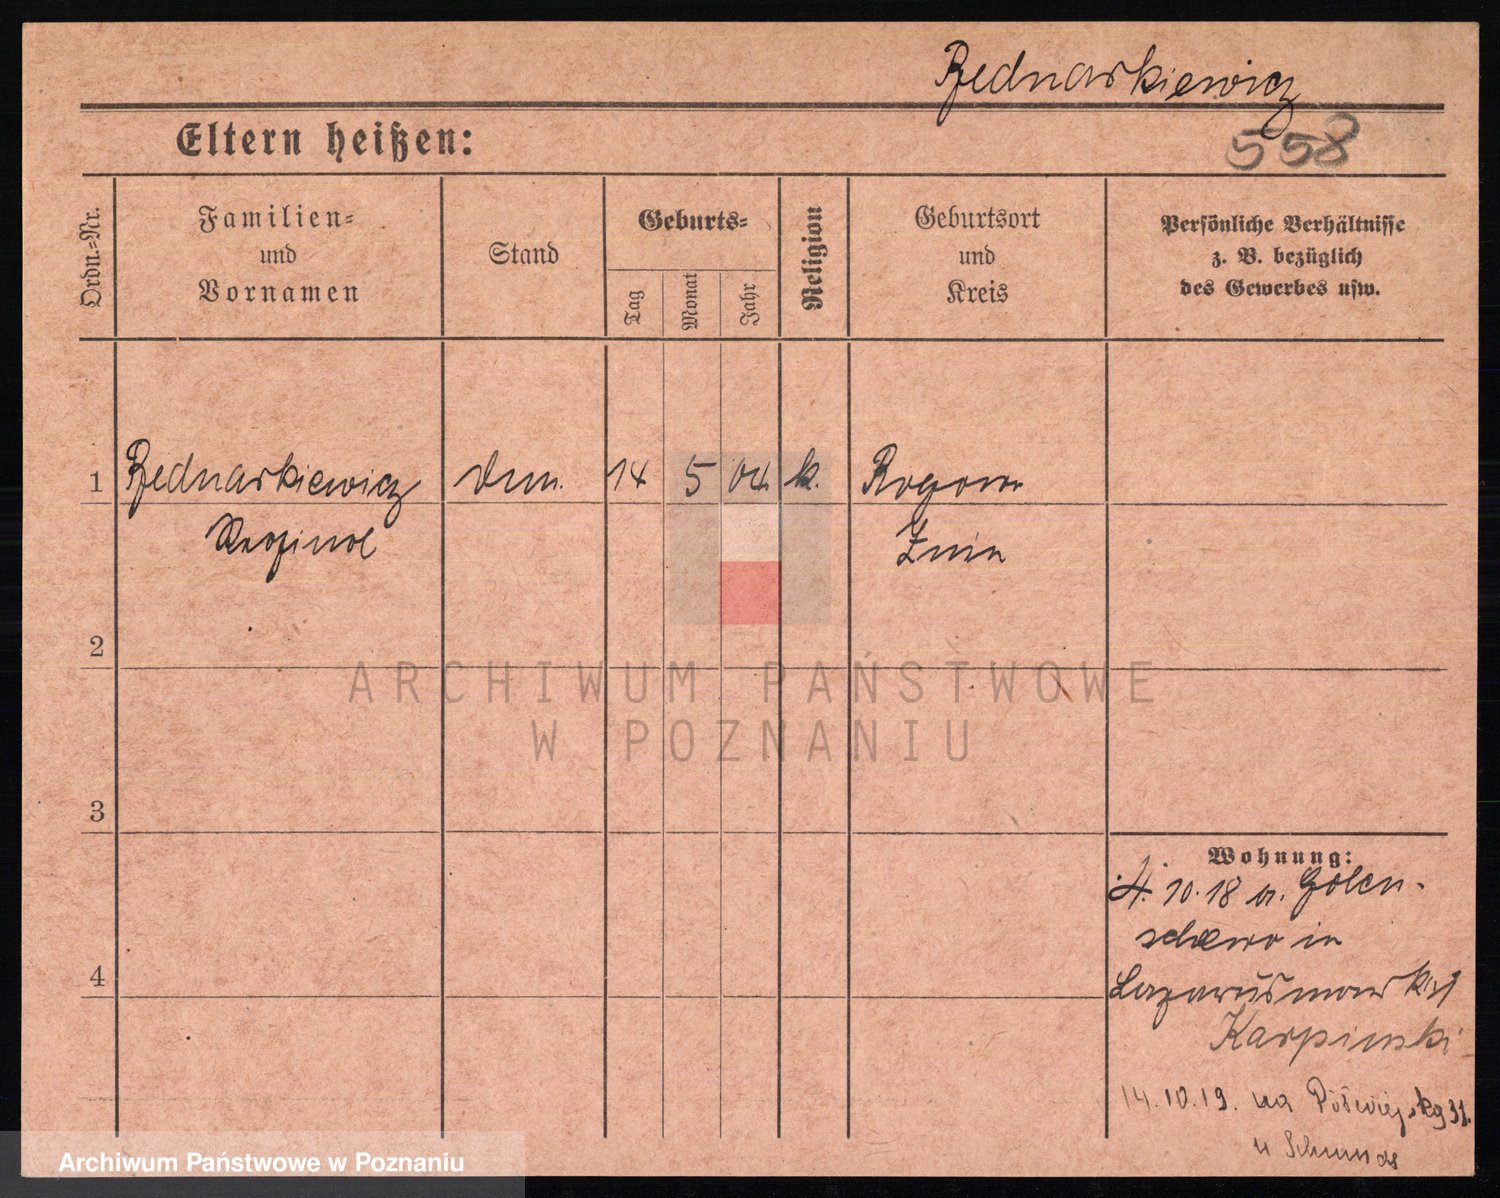 Bednarkiewicz
558
Eltern heißen:
Ordn.=Nr.
Familien=
und
Vornamen
Stand
Geburts=
Tag
Monat
Jahr
Religion
Geburtsort
und
Kreis
Persönliche Verhältnisse
z. B. bezüglich
des Gewerbes usw.
1 Bednarkiewicz 14 5 04 k. Rogowo
Znin
2
3
4
Wohnung:
4. 10. 18 a. Golen-
in
Lazarusmarkt
Karpinski
14. 10. 19. na 31.
u
ARCHIWUM PAŃSTWOWE
W POZNANIU
Archiwum Państwowe w Poznaniu